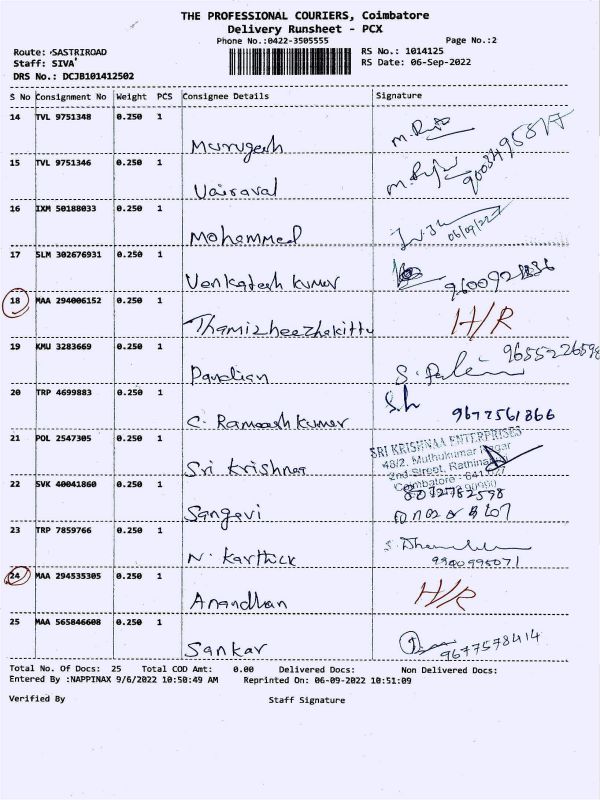 THE PROFESSIONAL COURIERS, Coimbatore
Delivery Runsheet - PCX
Phone No.:0422-3505555 Page No.:2
Route: SASTRIROAD RS No.: 1014125
Staff: SIVA RS Date: 06-Sep-2022
DRS No.: DCJB101412502
S No Consignment No Weight PCS Consignee Details Signature
14 TVL 9751348 0.250 1
Murugesh
15 TVL 9751346 0.250 1
Vairaval
16 IXM 50188033 0.250 1
Mohammed 06/09/22
17 SLM 302676931 0.250 1
Venkatesh kumar
18 MAA 294006152 0.250 1
Thamizheezhakittu H/R
19 KMU 3283669 0.250 1
Pandian 9655226598
20 TRP 4699883 0.250 1
C. Ramesh kumar 9677561866
21 POL 2547305 0.250 1
Sri Krishnaa SRI KRISHNAA ENTERPRISES
48/2, Muthukumar Nagar
2nd Street,
Coimbatore
22 SVK 40041860 0.250 1
Sangavi
23 TRP 7859766 0.250 1
N. Karthick 9940995071
24 MAA 294535305 0.250 1
Anandhan H/R
25 MAA 565846608 0.250 1
Sankar 9677578414
Total No. Of Docs: 25 Total COD Amt: 0.00 Delivered Docs: Non Delivered Docs:
Entered By :NAPPINAX 9/6/2022 10:50:49 AM Reprinted On: 06-09-2022 10:51:09
Verified By Staff Signature